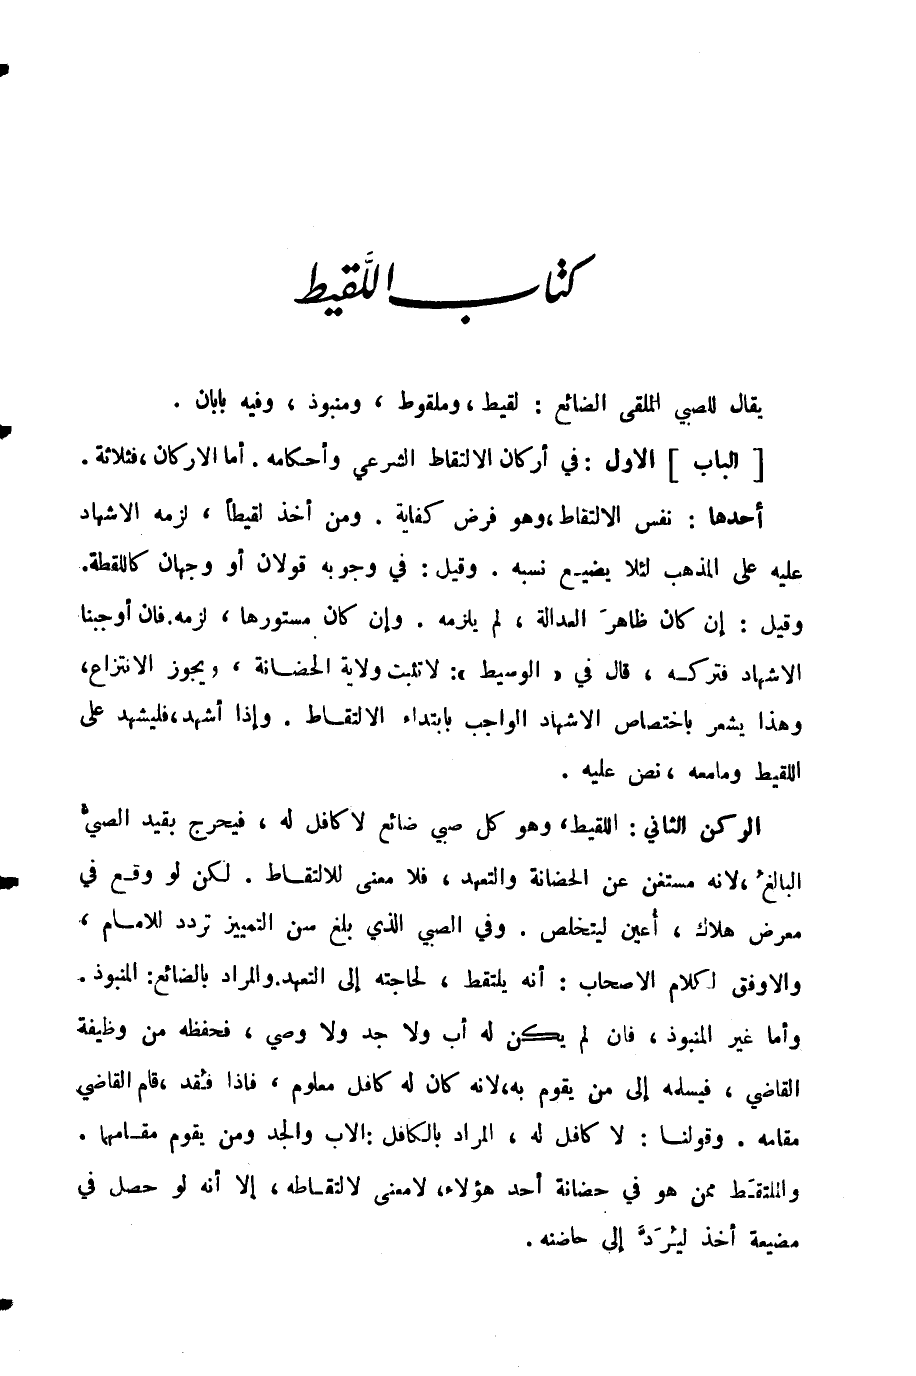 كتاب اللَّقيط
يقال للصبي الملقى الضائع : لقيط ، وملقوط ، ومنبوذ ، وفيه بابان .
[ الباب ] الاول : في أركان الالتقاط الشرعي وأحكامه . أما الاركان ، فثلاثة .
أحدها : نفس الالتقاط ، وهو فرض كفاية . ومن أخذ لقيطاً ، لزمه الاشهاد
عليه على المذهب لئلا يضيع نسبه . وقيل : في وجوبه قولان أو وجهان كاللقطة .
وقيل : إن كان ظاهرَ العدالة ، لم يلزمه . وإن كان مستورها ، لزمه . فان أوجبنا
الاشهاد فتركه ، قال في « الوسيط » : لا تثبت ولاية الحضانة ، ويجوز الانتزاع ،
وهذا يشعر باختصاص الاشهاد الواجب بابتداء الالتقاط . وإذا أشهد ، فليشهد على
اللقيط وما معه ، نص عليه .
الركن الثاني : اللقيط ، وهو كل صبي ضائع لا كافل له ، فيخرج بقيد الصبيِّ
البالغُ ، لانه مستغن عن الحضانة والتعهد ، فلا معنى للالتقاط . لكن لو وقع في
معرض هلاك ، أُعين ليتخلص . وفي الصبي الذي بلغ سن التمييز تردد للامام ،
والاوفق لكلام الاصحاب : أنه يلتقط ، لحاجته إلى التعهد . والمراد بالضائع : المنبوذ .
وأما غير المنبوذ ، فان لم يكن له أب ولا جد ولا وصي ، فحفظه من وظيفة
القاضي ، فيسلمه إلى من يقوم به ، لانه كان له كافل معلوم ، فاذا فُقد ، قام القاضي
مقامه . وقولنا : لا كافل له ، المراد بالكافل : الاب والجد ومن يقوم مقامها .
والملتقَط ممن هو في حضانة أحد هؤلاء ، لا معنى لالتقاطه ، إلا أنه لو حصل في
مضيعة أخذ ليُرَدَّ إلى حاضنه .